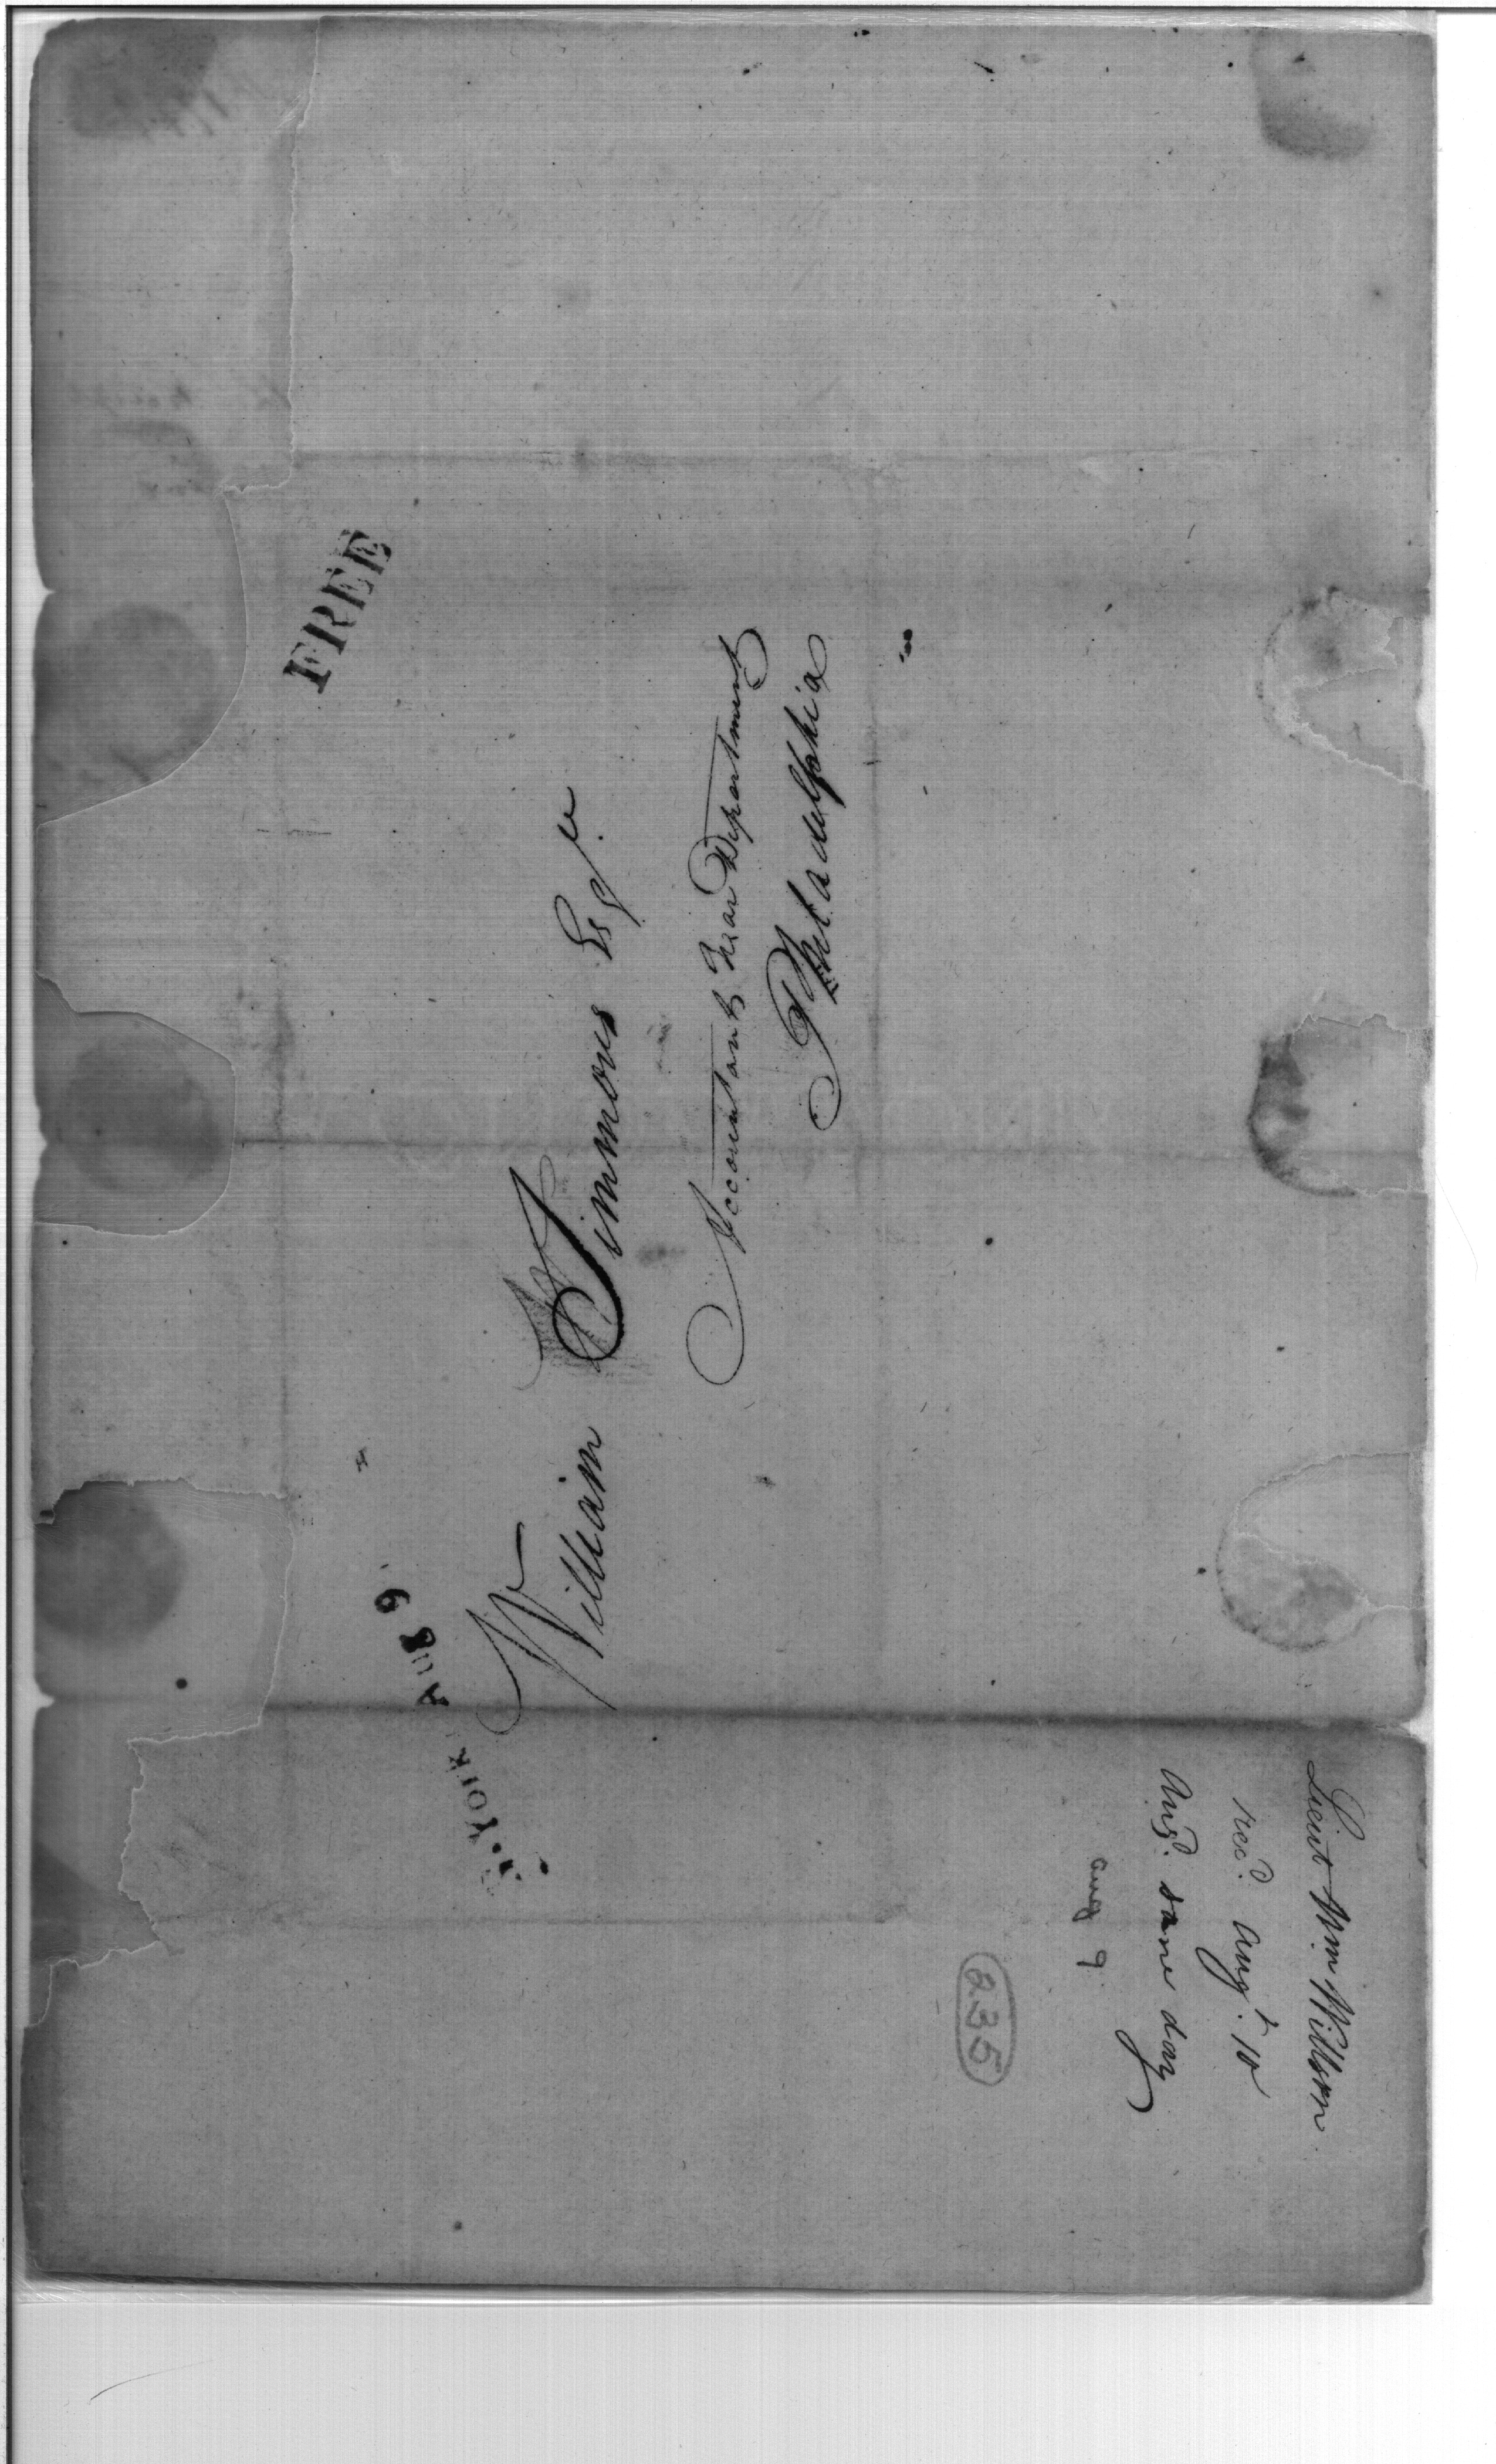 FREE
N. YORK AUG 9.
William Simmons Esqr.
Accountant War Department
Philadelphia
Lieut Wm Willson
recd. Augt. 10
Ansd. same day
aug 9
235